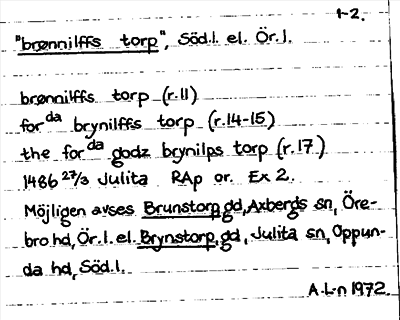 1-2.
"brønnilffs torp", Söd.l. el. Ör.l.
brønnilffs torp (r.11)
for da brynilffs torp (r.14-15)
the for da godz brynilps torp (r.17)
1486 27/3 Julita RAp or. Ex 2.
Möjligen avses Brunstorp, gd, Axbergs sn, Öre-
bro hd, Ör.l. el. Brynstorp, gd, Julita sn, Oppun-
da hd, Söd.l.
A.L-n 1972.